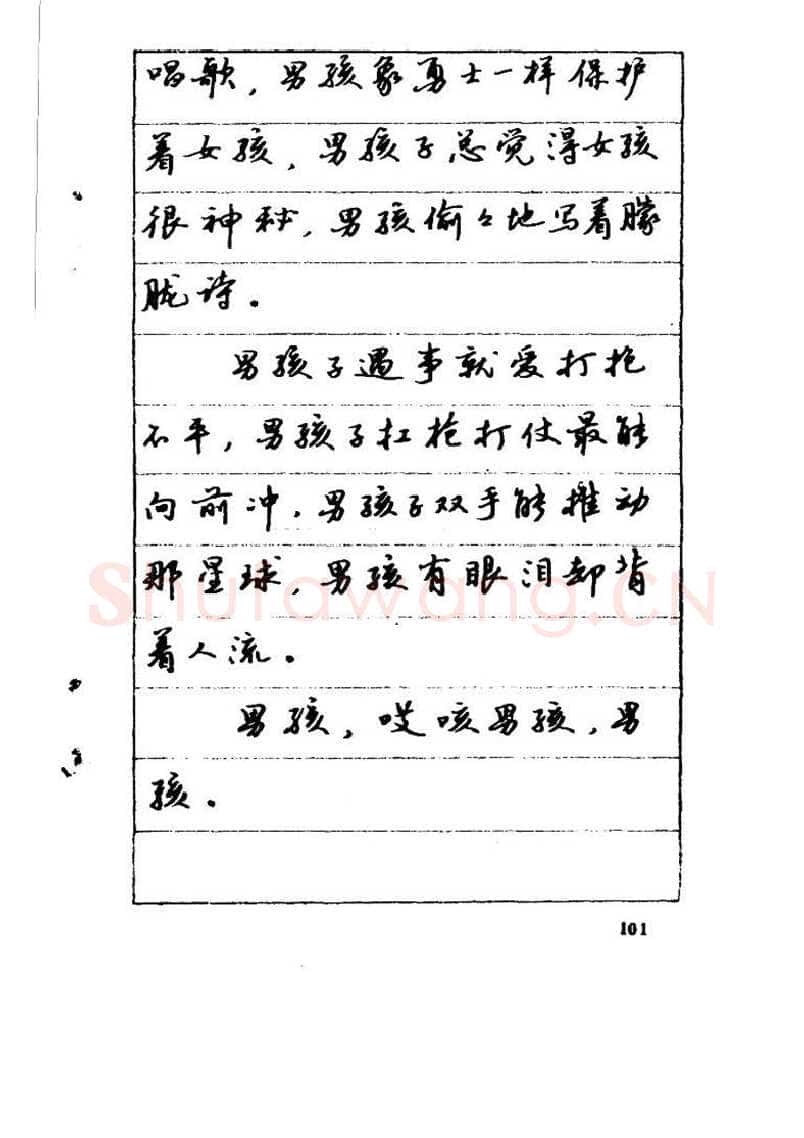 唱歌，男孩象勇士一样保护
着女孩，男孩子总觉得女孩
很神秘，男孩偷々地写着朦
胧诗。
男孩子遇事就爱打抱
不平，男孩子扛枪打仗最能
向前冲，男孩子双手能推动
那星球，男孩有眼泪却背
着人流。
男孩，哎咳男孩，男
孩。
101
Shufawang.CN